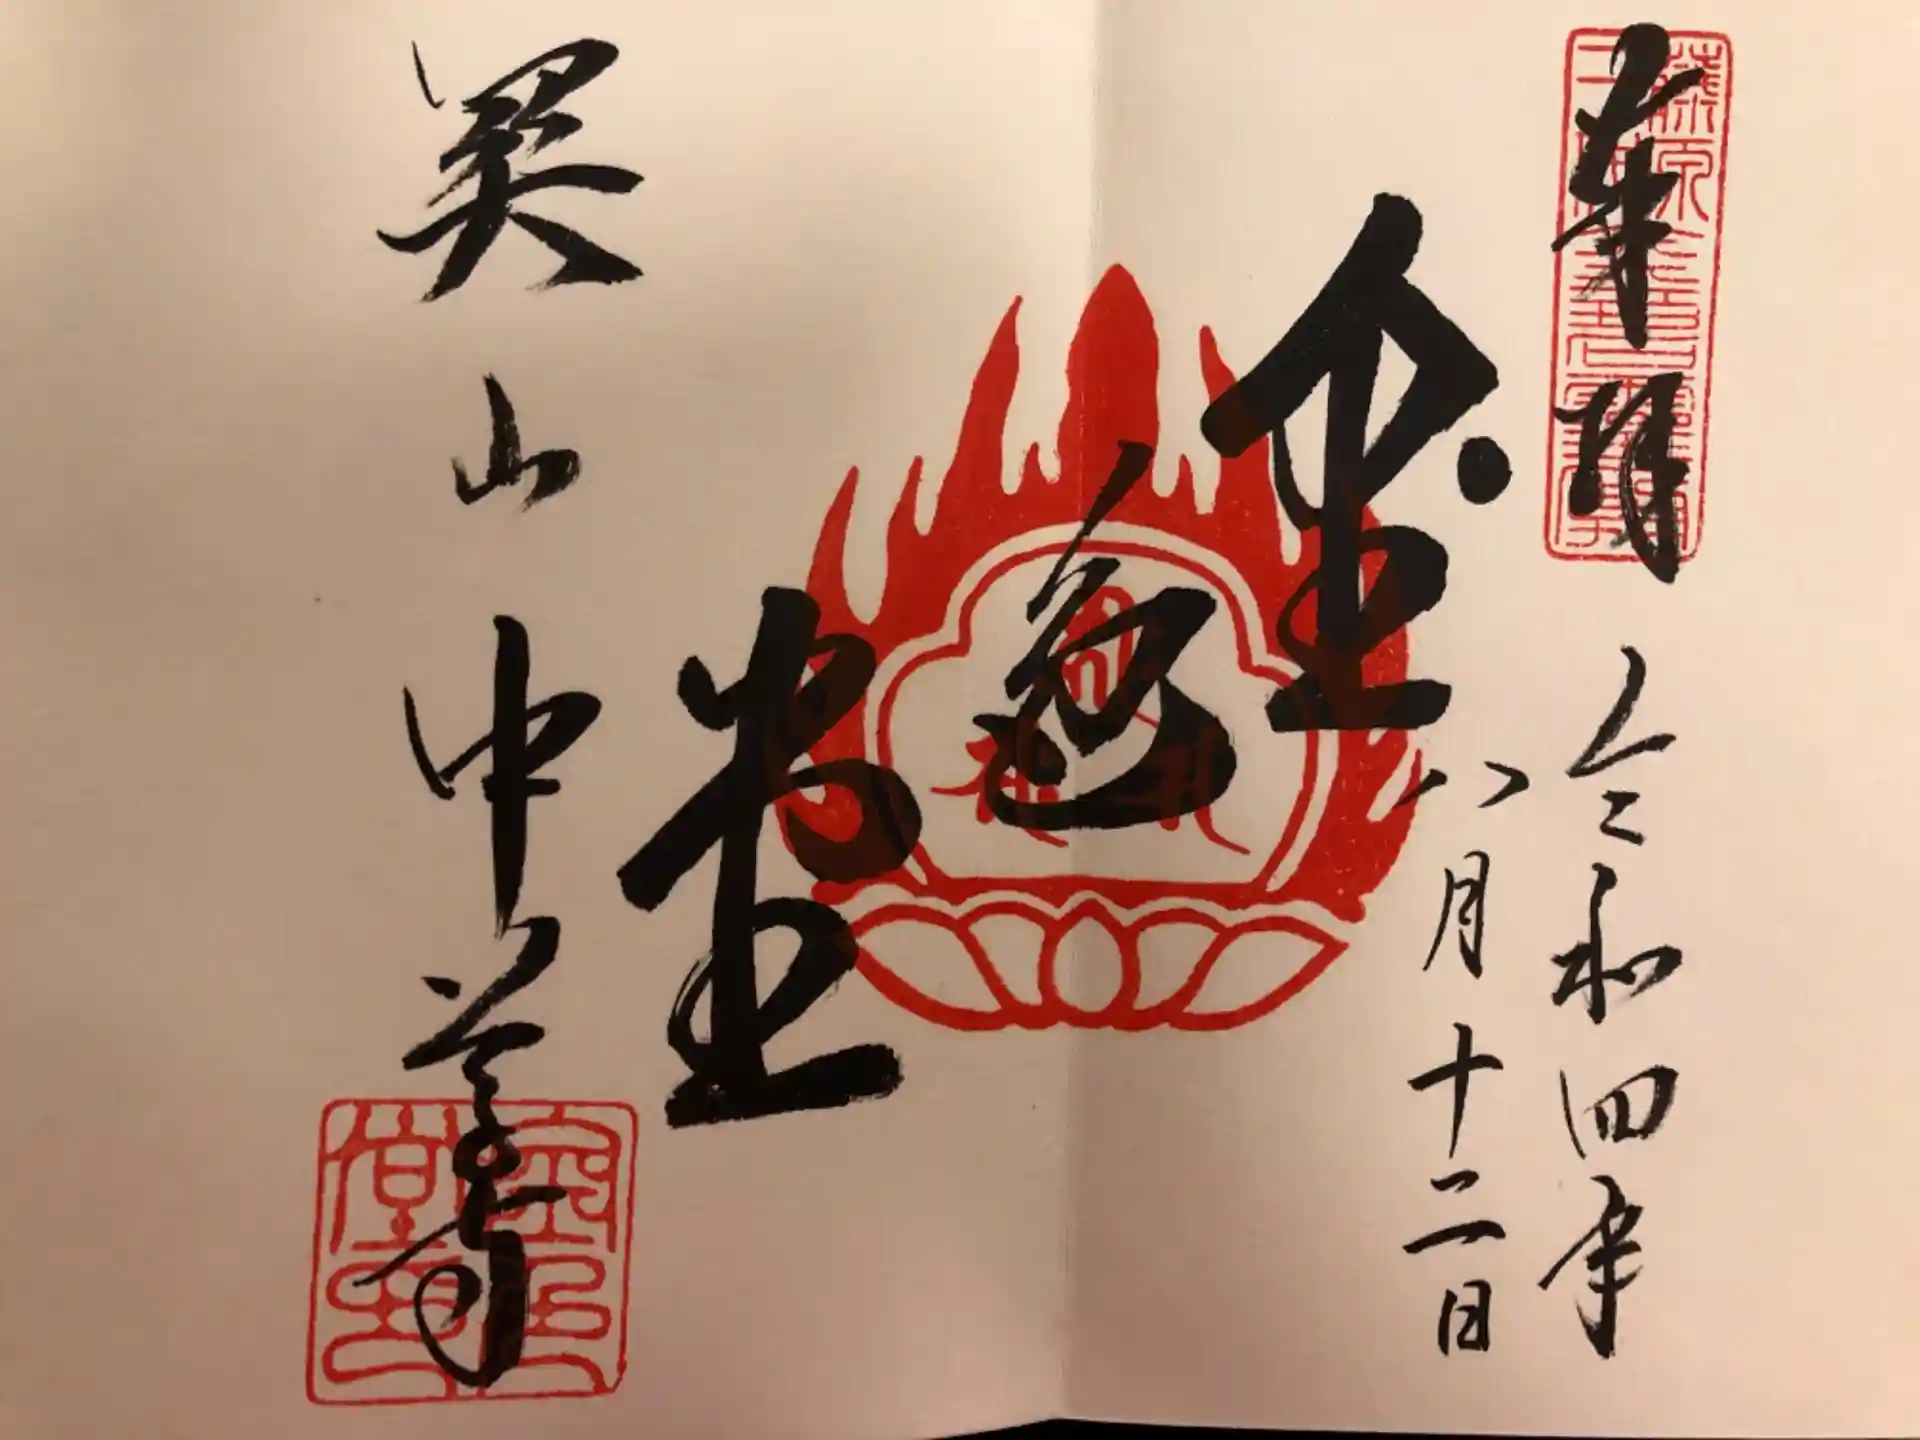 奉拝
令和四年
八月十二日
金色堂
関山中尊寺
金色堂印